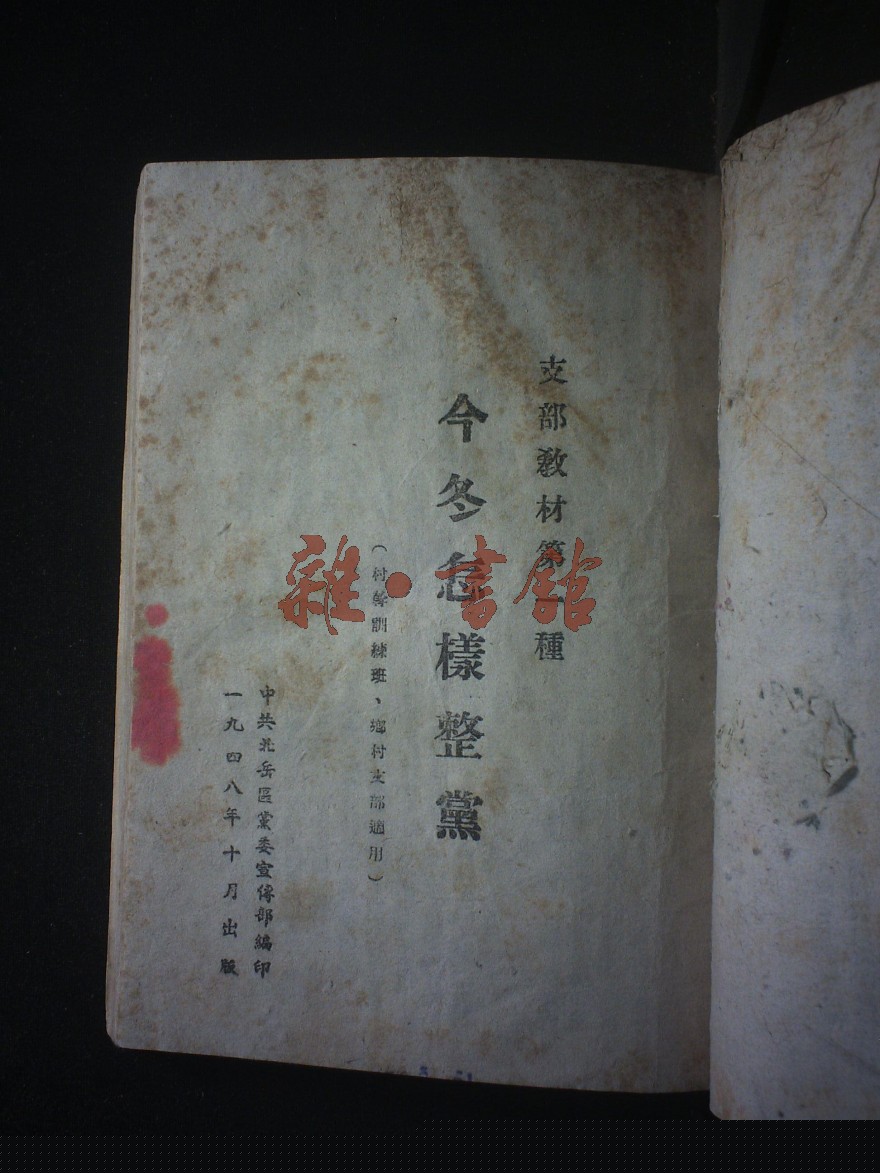 支部教材第一種
今冬怎樣整黨
（村幹訓練班、鄉村支部適用）
中共北岳區黨委宣傳部編印
一九四八年十月出版
雜·書館